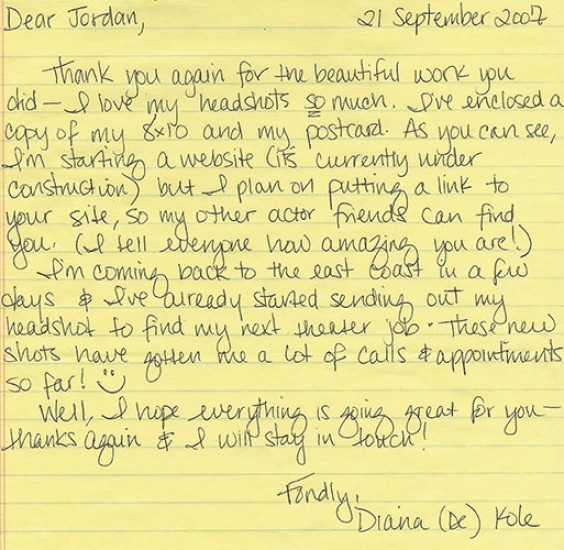 Dear Jordan, 21 September 2007
Thank you again for the beautiful work you
did – I love my headshots so much. I've enclosed a
copy of my 8x10 and my postcard. As you can see,
I'm starting a website (it's currently under
construction) but I plan on putting a link to
your site, so my other actor friends can find
you. (I tell everyone how amazing you are!)
I'm coming back to the east coast in a few
days & I've already started sending out my
headshot to find my next theater job. These new
shots have gotten me a lot of calls & appointments
so far! :)
Well, I hope everything is going great for you –
thanks again & I will stay in touch!
Fondly,
Diana (De) Kole